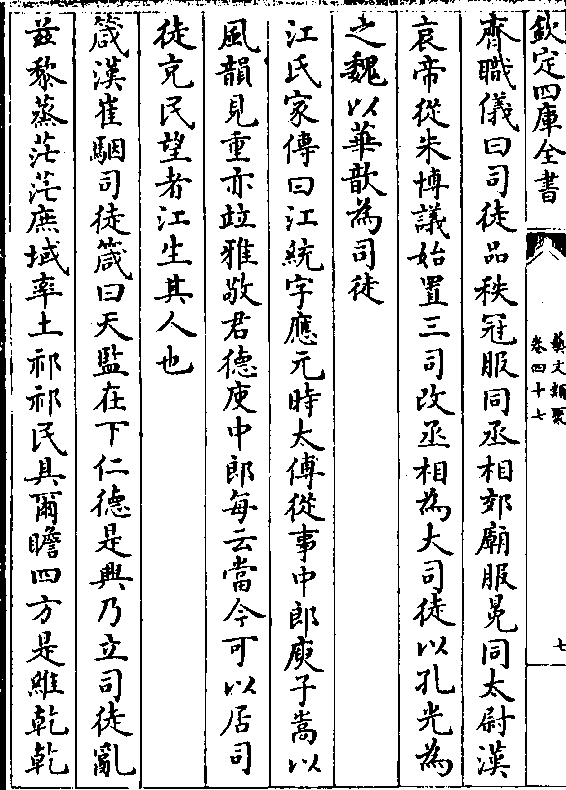 欽定四庫全書
藝文類聚
卷四十七
七
齊職儀曰司徒品秩冠服同丞相郊廟服冕同太尉漢
哀帝從朱博議始置三司改丞相為大司徒以孔光為
之魏以華歆為司徒
江氏家傳曰江統字應元時太傅從事中郎庾子嵩以
風韻見重亦竝雅敬君德庾中郎每云當今可以居司
徒克民望者江生其人也
箴漢崔駰司徒箴曰天監在下仁德是興乃立司徒亂
茲黎蒸茫茫庶域率土祁祁民具爾瞻四方是維乾乾